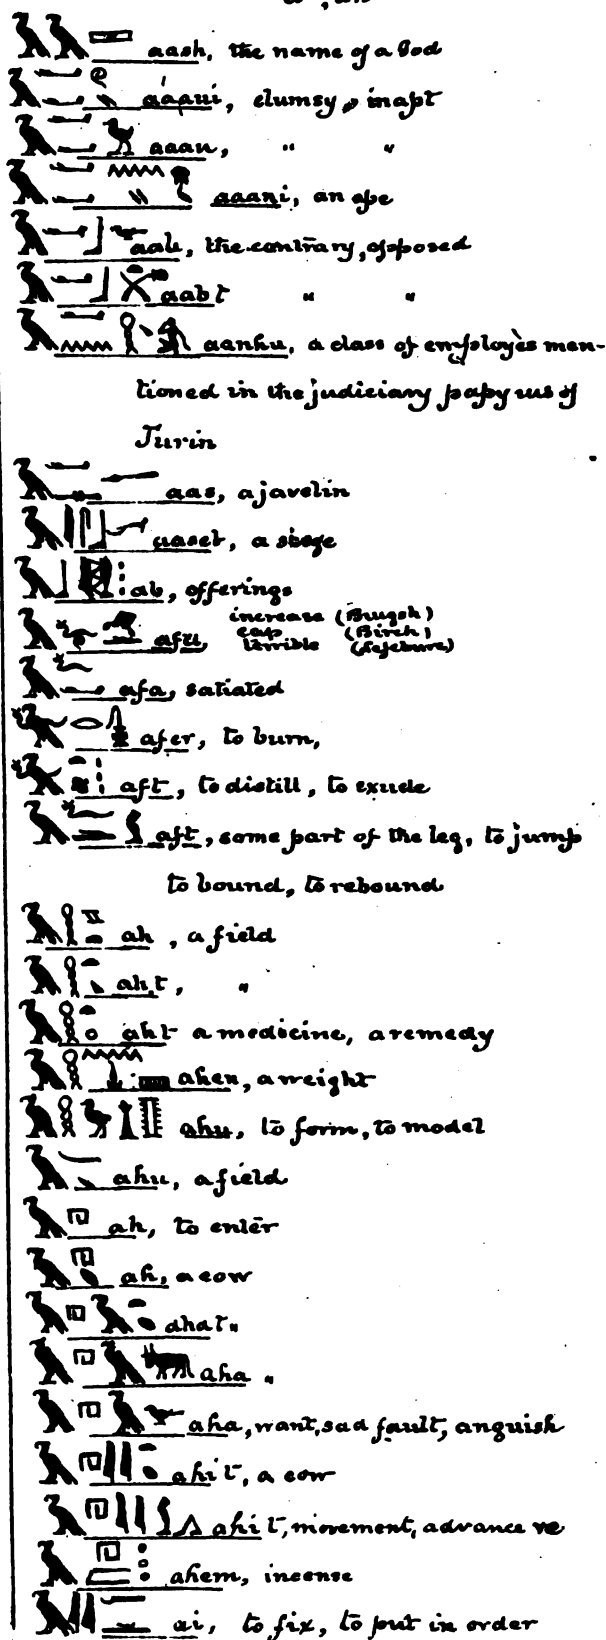 aash, the name of a God
aaaui, clumsy, inapt
aaau, " "
aaani, an ape
aab, the contrary, opposed
aabt " "
aanhu, a class of employès men-
tioned in the judiciary papyrus of
Turin
aas, a javelin
aaseb, a siege
ab, offerings
afu, increase (Brugsh)
cap (Birch)
terrible (Lefebure)
afa, satiated
afer, to burn,
aft, to distill, to exude
aft, some part of the leg, to jump
to bound, to rebound
ah, a field
aht, "
aht a medicine, a remedy
ahen, a weight
ahu, to form, to model
ahu, a field
ah, to enter
ah, a cow
ahat "
aha "
aha, want, sad fault, anguish
ahit, a cow
ahit, movement, advance
ahem, incense
ai, to fix, to put in order